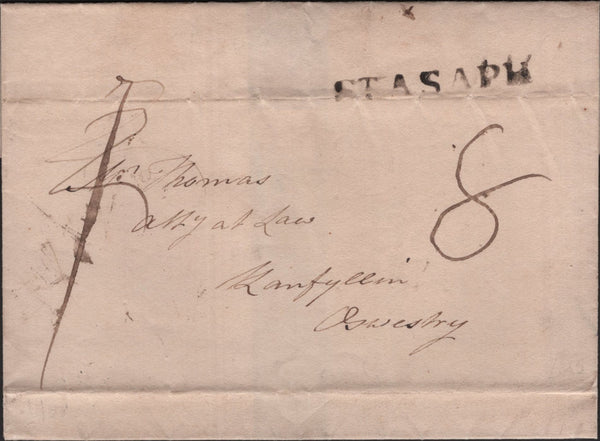 ST ASAPH
8
Mr Thomas
Atty at Law
Lanfyllin
Oswestry